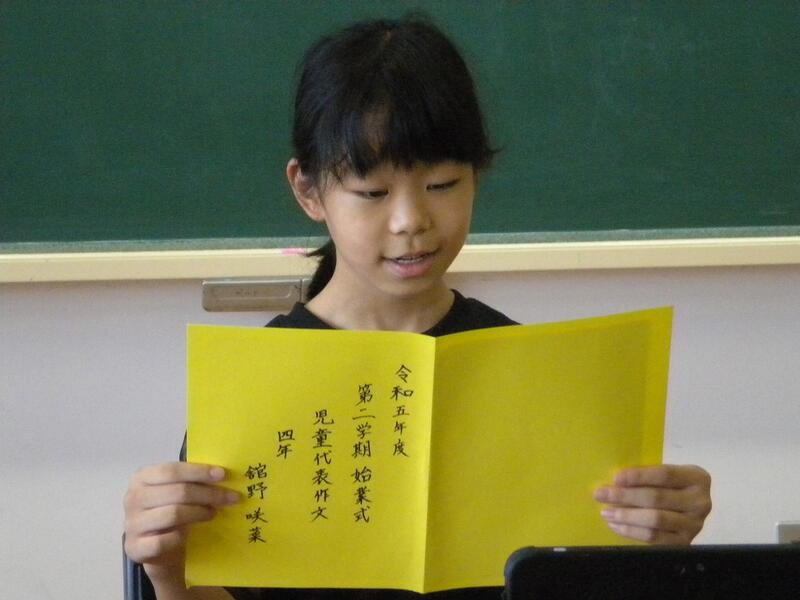 令和五年度
第二学期 始業式
児童代表作文
四年
舘野 咲菜